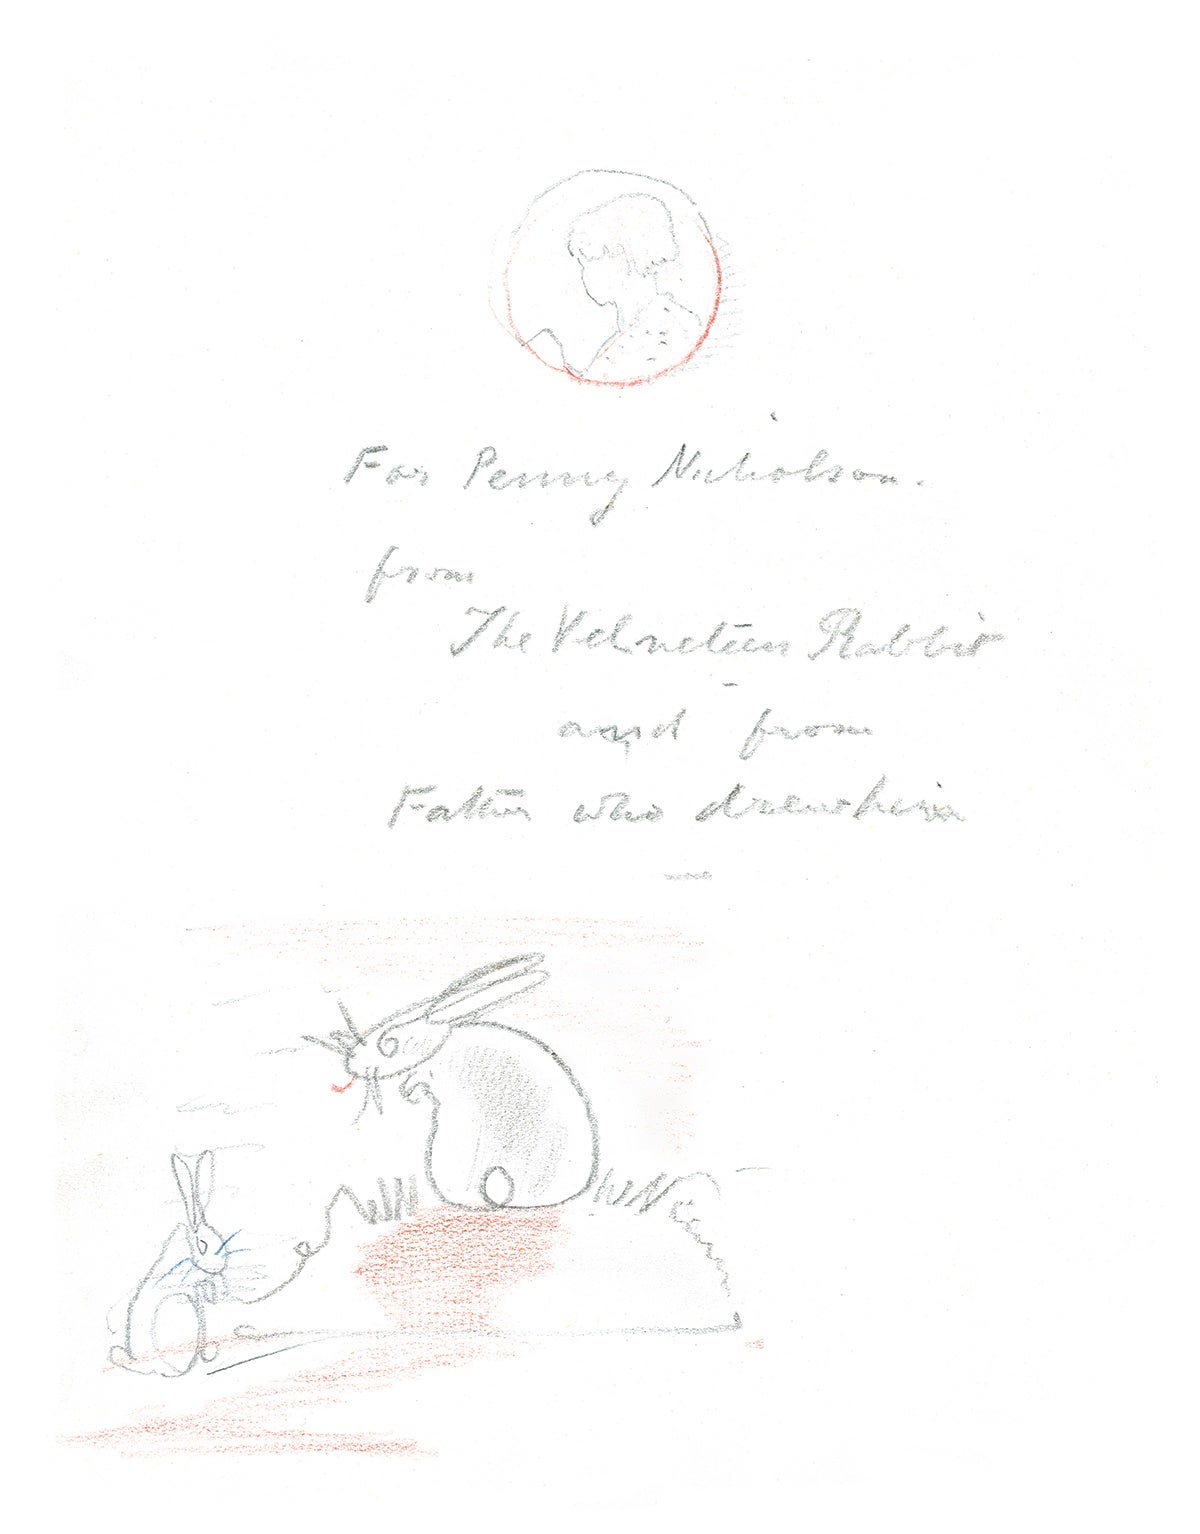 For Penny Nicholson.
from
The Velveteen Rabbit
and from
Father who drew him